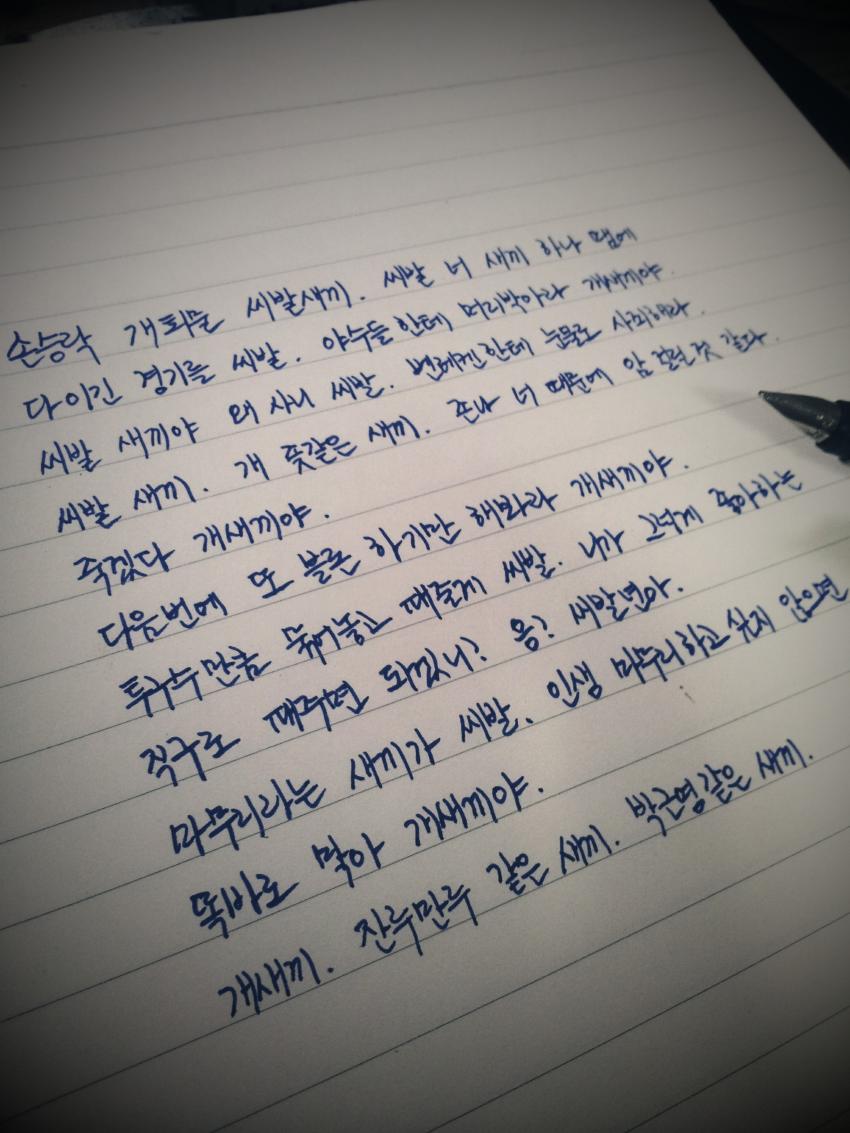 손승락 개퇴물 씨발새끼. 씨발 너 새끼 하나 땜에
다 이긴 경기를 씨발. 야수들한테 머리박아라 개새끼야.
씨발 새끼야 왜 사니 씨발. 벤헤켄한테 눈물로 사죄해라.
씨발 새끼. 개 좆같은 새끼. 존나 너 때문에 암 걸린 것 같다.
죽겠다 개새끼야.
다음번에 또 블론 하기만 해봐라 개새끼야.
투구수만큼 묶어놓고 때줄게 씨발. 니가 그렇게 좋아하는
직구로 때려주면 되겠니? 응? 씨발년아.
마무리라는 새끼가 씨발. 인생 마무리하고 싶지 않으면
똑바로 막아 개새끼야.
개새끼. 잔루만루 같은 새끼. 박근영같은 새끼.